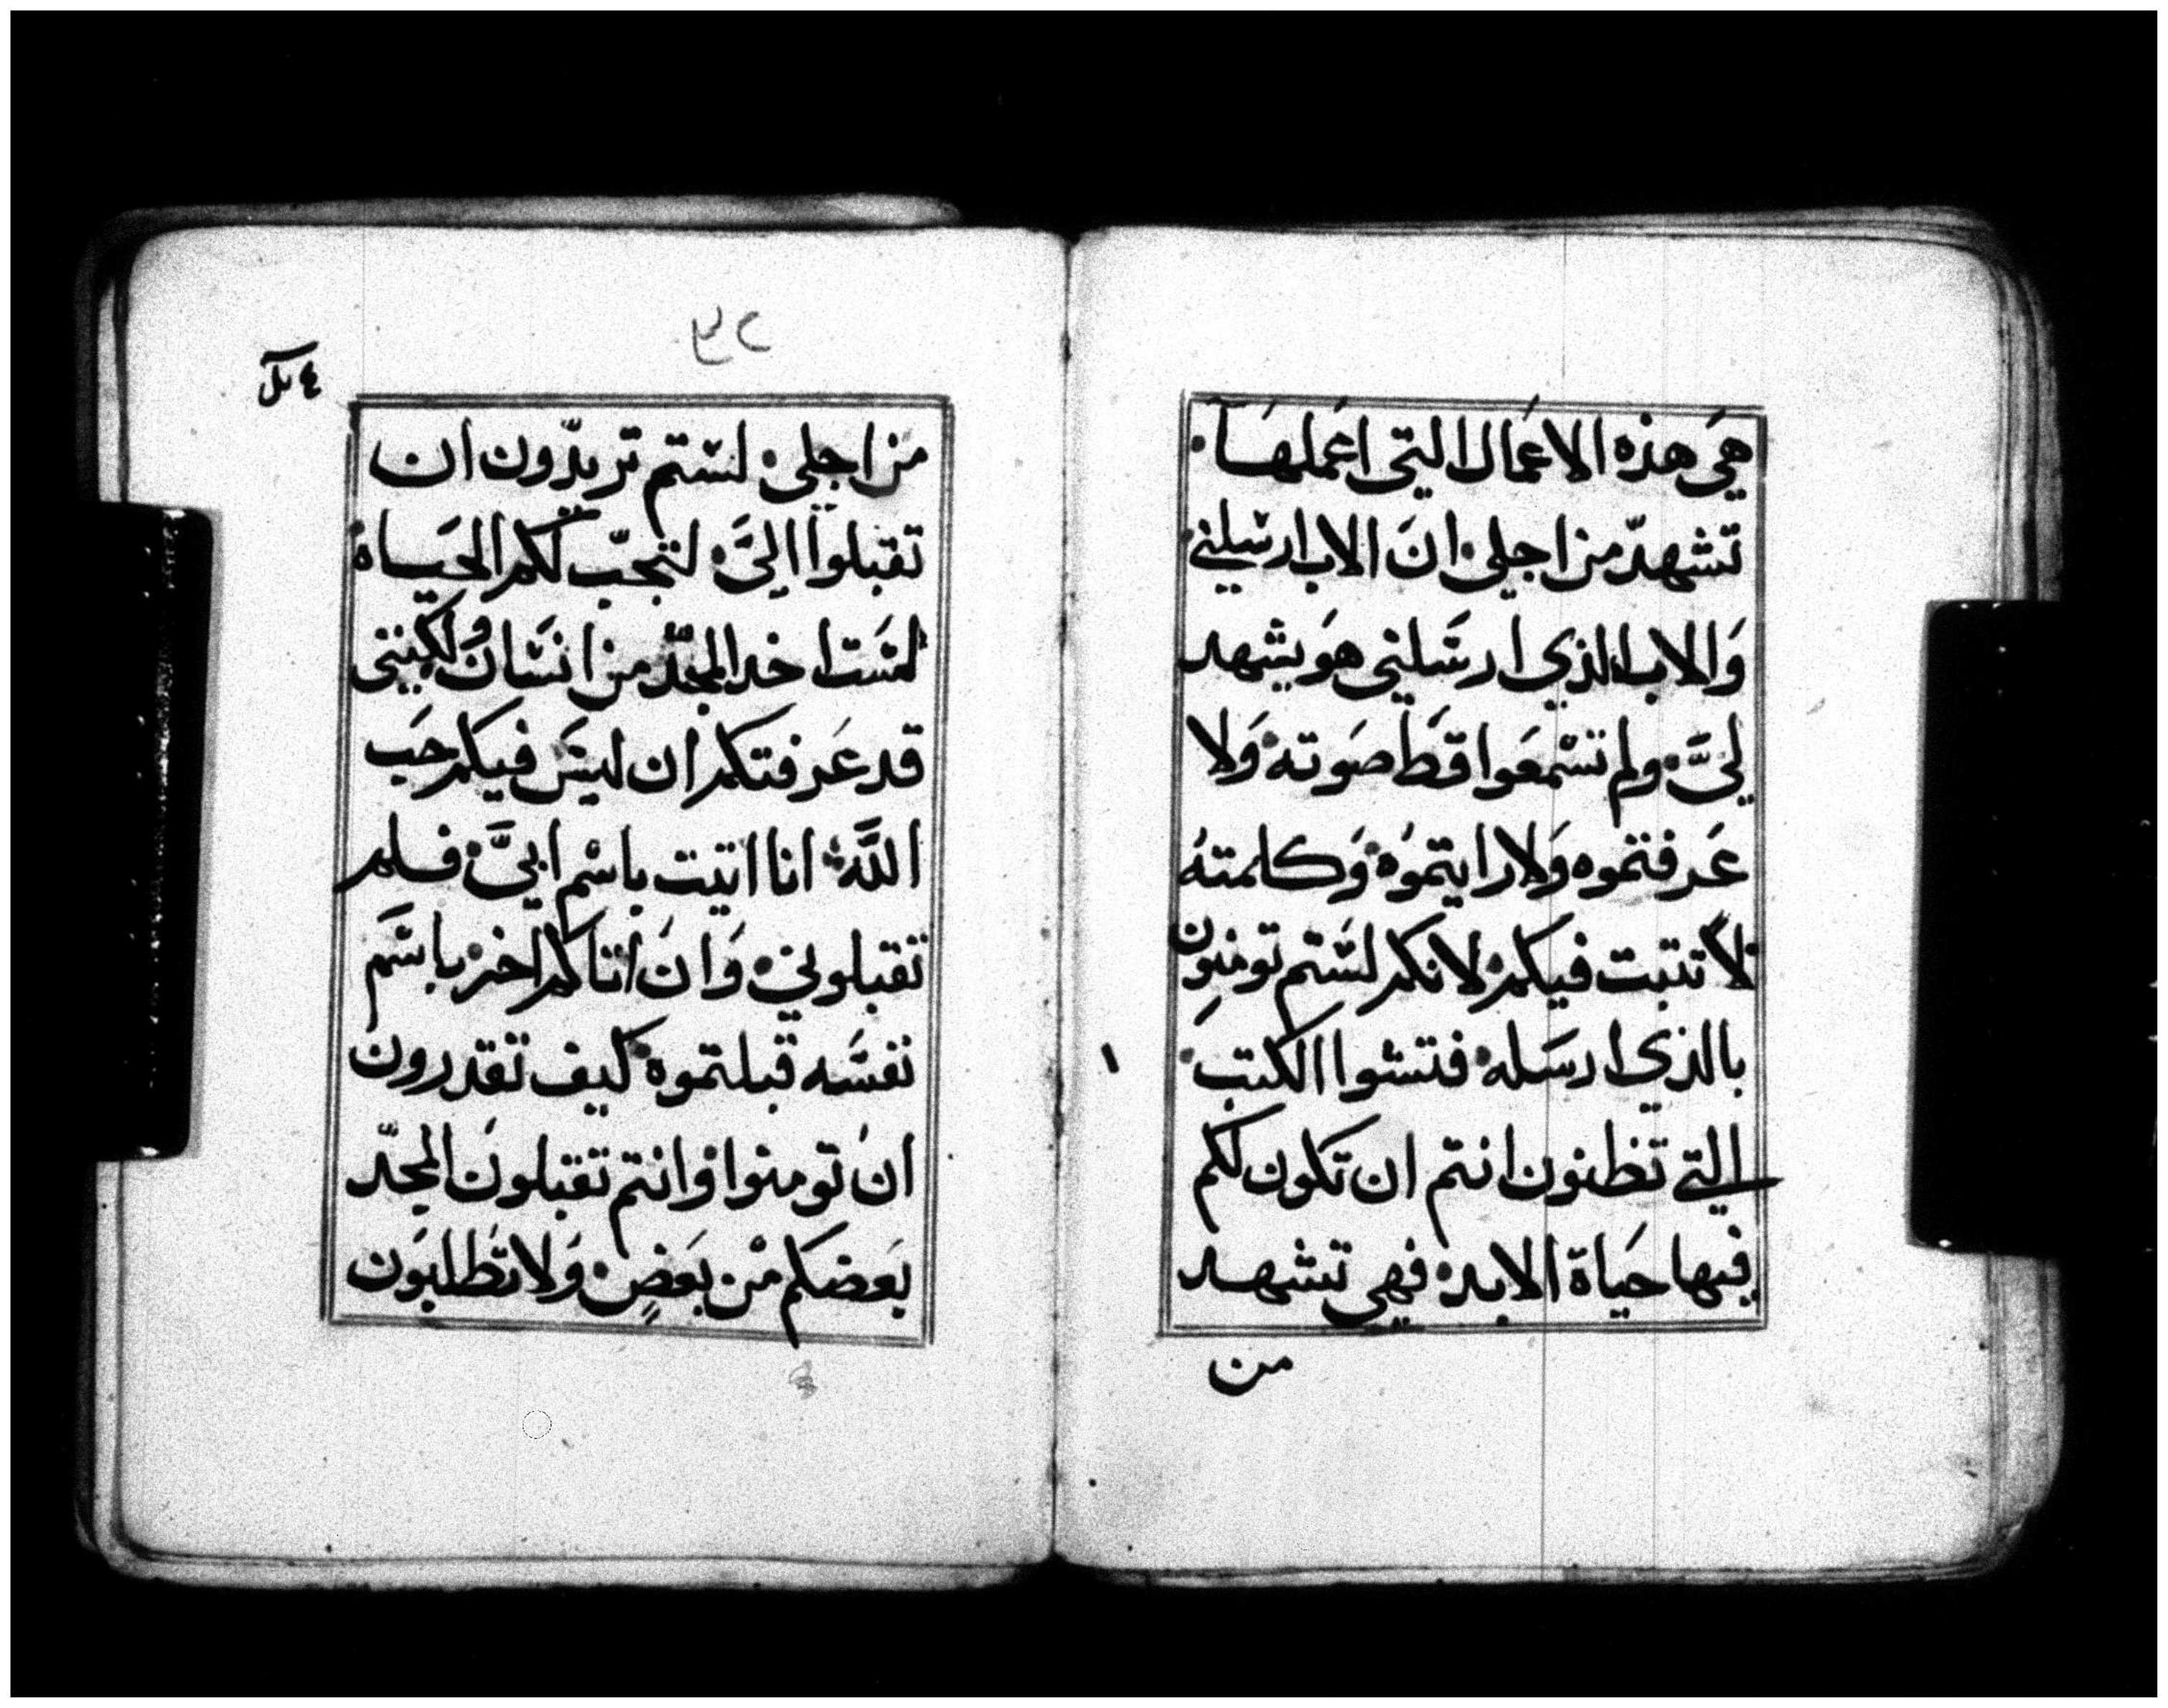 هي هذه الاعمال التي اعملها
تشهد من اجلي ان الاب ارسلني
والاب الذي ارسلني هو يشهد
لي ولم تسمعوا قط صوته ولا
عرفتموه ولا رايتموه وكلمته
لا تتبت فيكم لانكم لستم تومنون
بالذي ارسله فتشوا الكتب
التي تظنون انتم ان تكون لكم
فيها حياة الابد فهي تشهد
من
من اجلي لستم تريدون ان
تقبلوا الي لتجب لكم الحياة
لست اخد المجد من انسان ولكنني
قد عرفتكم ان ليس فيكم حب
الله انا اتيت باسم ابي فلم
تقبلوني وان اتاكم اخر باسم
نفسه قبلتموه كيف تقدرون
ان تومنوا وانتم تقبلون المجد
بعضكم من بعض ولا تطلبون